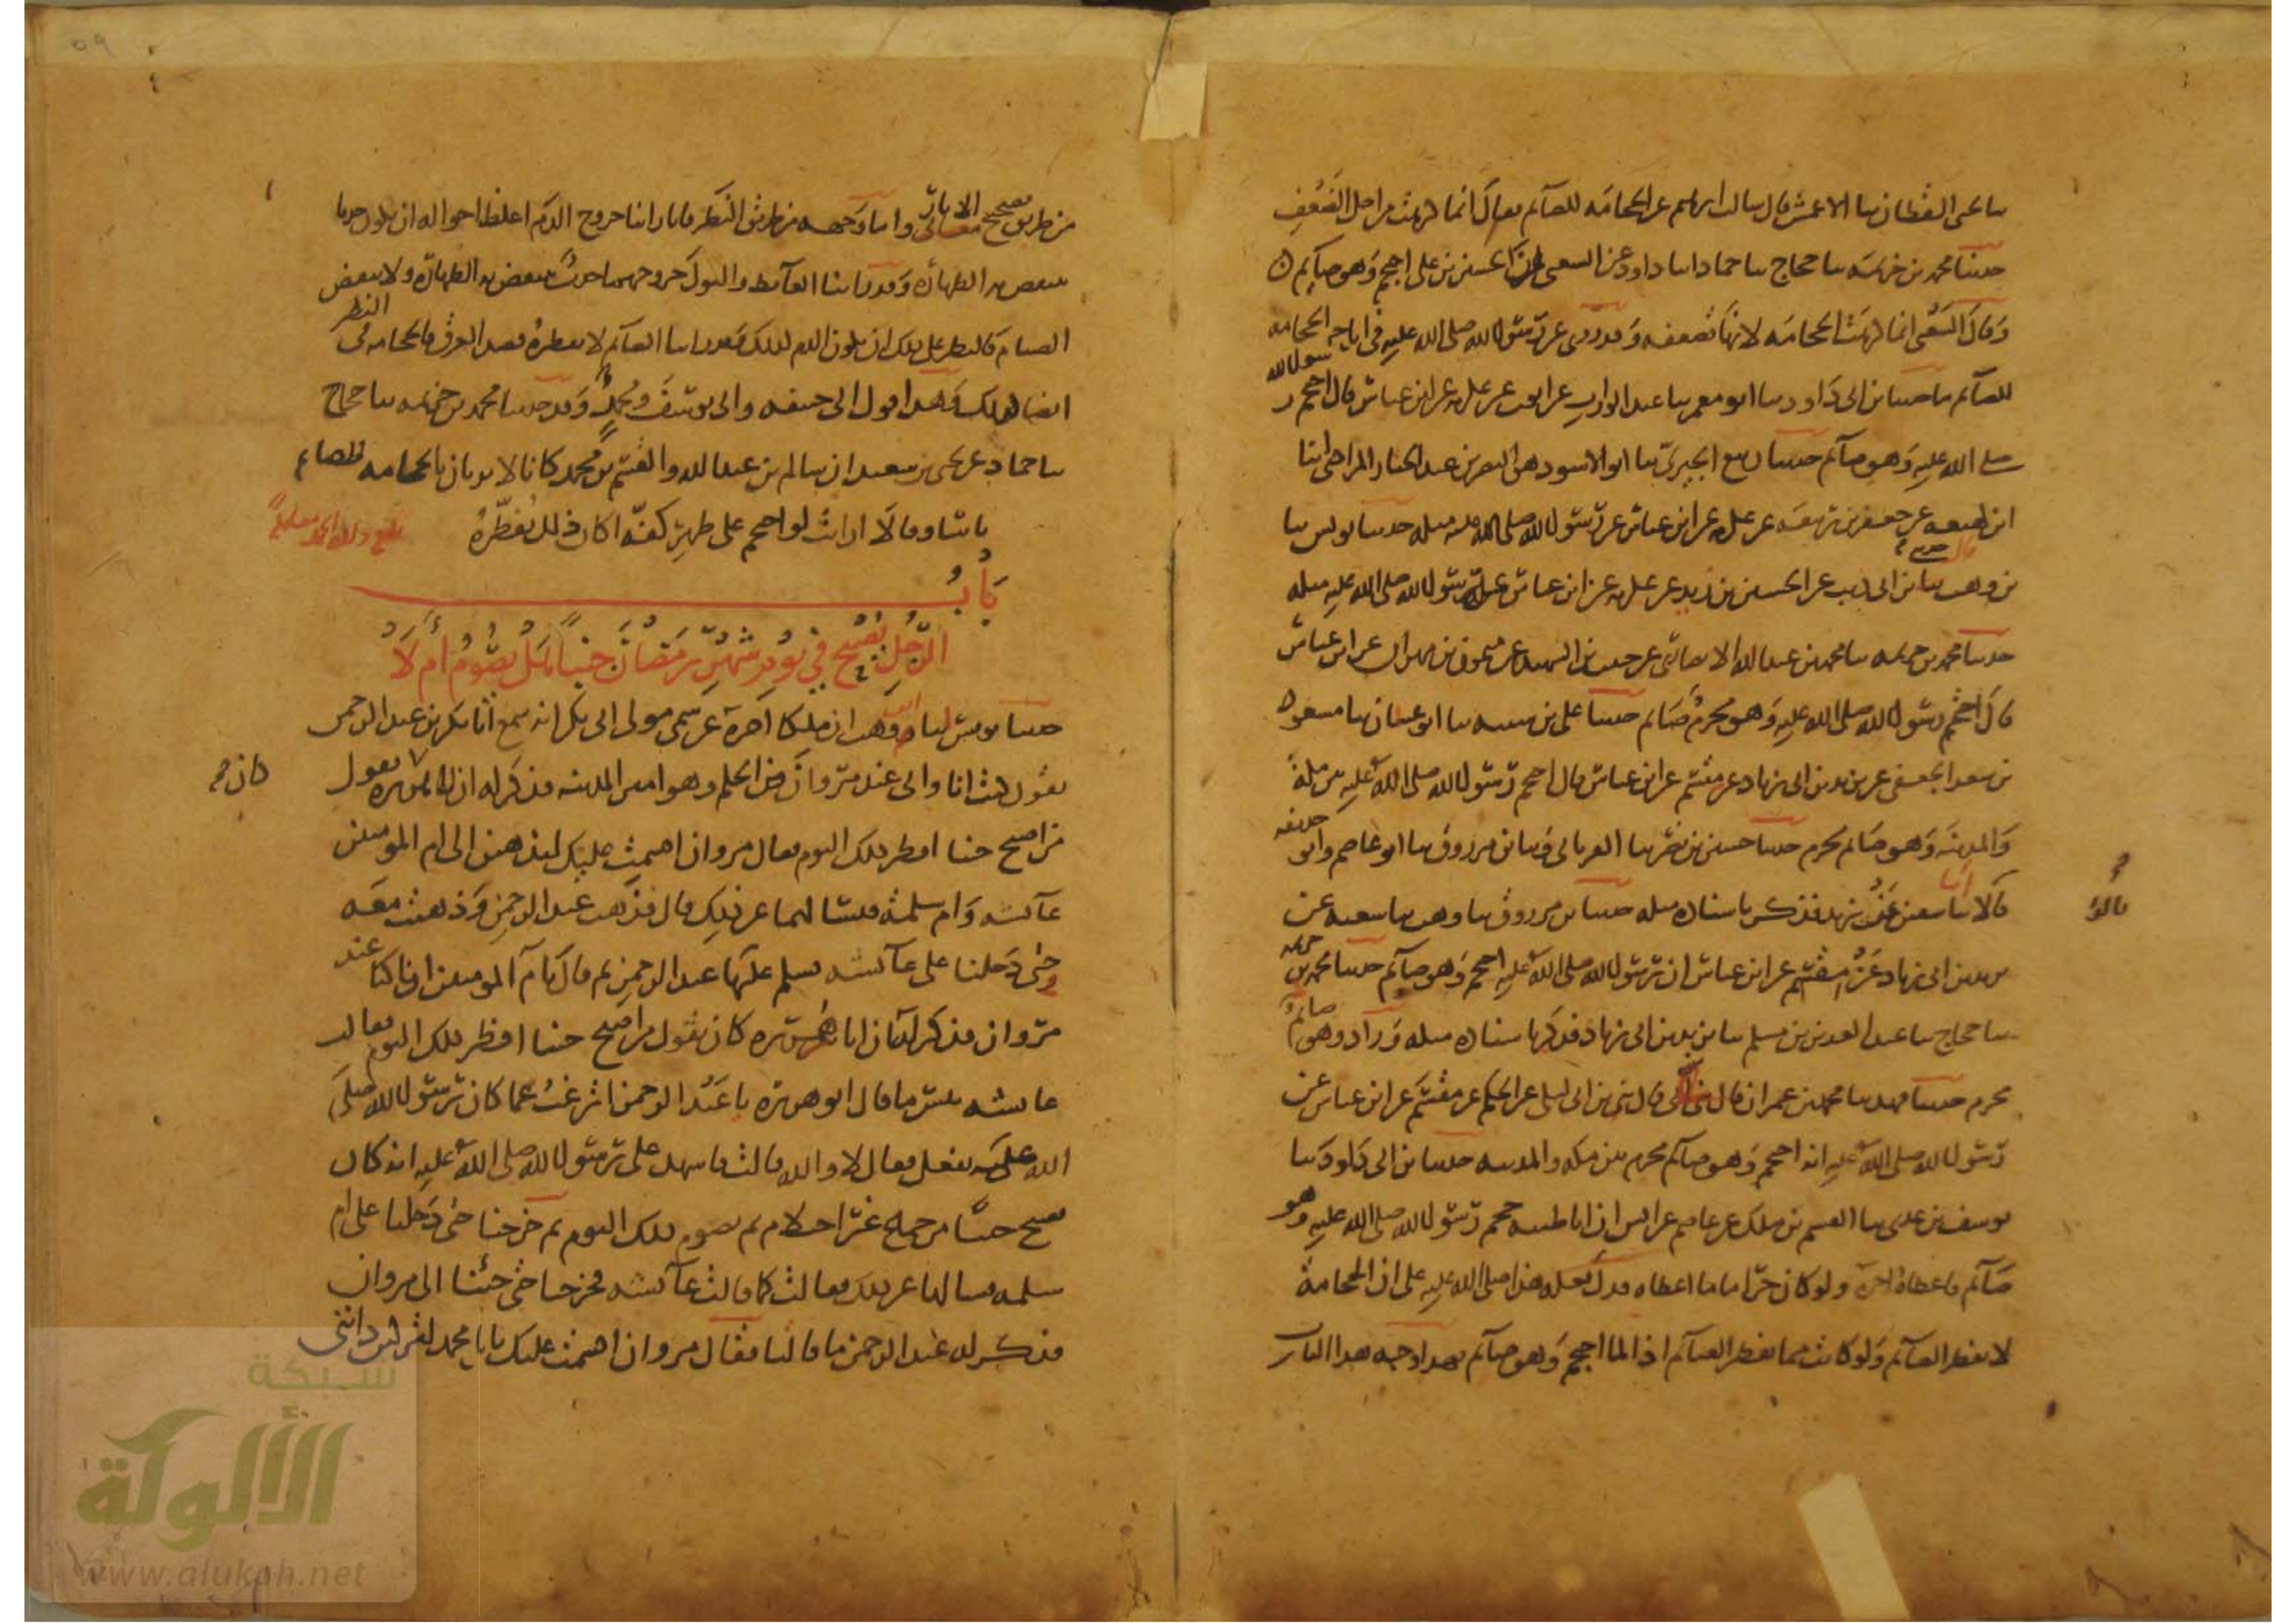 نا يحيى القطان نا الاعمش قال سالت ابراهيم عن الحجامه للصآئم فقال انما كرهت من اجل الضَعْفِ
حدثنا محمد بن خزيمه نا حجاج نا حماد انا داود عن الشعبى ان الحسين بن على احتجم وَهو صآئم
وَقال الشَعْبى انما كرهَت الحجامَه لانها تضعفه وَقد روى عن رَسُول الله صلى الله عليه فى اباحه الحجامه
للصآئم ما حدثنا بن ابى دَاود نا ابو معمر نا عبد الوارث عن ايوب عن عكرمه عن ابن عباس قال احتجم رسول الله
صلى الله عليه وَهو صآئم حدثنا ربيع الجيزىّ نا ابو الاسود وهو النضر بن عبد الجبار المرادى انا
ابن لهيعه عن جعفر بن ربيعَه عن عكرمه عن ابن عباس عن رَسُول الله صلى الله عليه مثله حدثنا يونس نا
بن وهب نا بن ابى ذيب عن الحسين بن زيد عن عكرمه عن ابن عباس عن رسُول الله صلى الله عليه مثله
حدثنا محمد بن خزيمه نا محمد بن عبد الله الانصارى عن حبيب بن الشهيد عن ميمون بن مهران عن ابن عباس
قال احتجم رسُول الله صلى الله عليه وَهو محرم صَائم حدثنا على بن شيبه نا ابو غسان نا مسعود
بن سعد الجعفى عن يزيد بن ابى زياد عن مقسم عن ابن عباس قال احتجم رَسُول الله صلى الله عليه بين مكة
وَالمدينَه وَهو صَائم محرم حدثنا حسين بن نصر نا الفريابى وَنا بن مرزوق نا ابو عاصم وابو حذيفه
قالا نا سفين عَنْ يزيد فذكر باسناده مثله حدثنا بن مرزوق نا وهب نا شعبه عن
قالوا
يزيد بن ابى زياد عَنْ مقسَم عن ابن عباس ان رَسُول الله صلى الله عليه احتجم وَهو صآئم حدثنا محمد بن خزيمه
نا حجاج نا عبد العزيز بن مسلم نا يزيد بن ابى زياد فذكر باسناده مثله وَزاد وهو صائم
محرم حدثنا فهد نا محمد بن عمران قال بن ابى ليلى عن الحكم عن مقسَم عَن ابن عباس عن
رَسُول الله صلى الله عليه انه احتجم وَهو صآئم محرم بين مكه والمدينه حدثنا بن ابى دَاود نا
يوسف بن عدى نا القسم بن ملك عن عاصم عن انس ان ابا طيبه حجم رَسُول الله صلى الله عليه وهو
صَآئم فاعطاهُ اجرَه ولو كان حرَاما ما اعطاه فدل فعله هذا صلى الله عليه على ان الحجامة
لا تفطر الصآئم وَلو كانت مما يفطر الصآئم اذا لما احتجم وَهو صآئم فهذا وجه هذا الباب
من طريق تصحيح معانى الاثار واما وَجهه من طريق النَظر فانا راينا خروج الدَم اغلظ احواله ان يكون حدثا
ينتقض به الطهارَه وَقد راينا الغآئط والبول خروجهما حدث ينتقض به الطهارَه ولا ينقض
الصيام فالنظر على ذلك ان يكون الدم كذلك وَقد راينا الصآئم لا يفطره فصد العرق فالحجامه فى النظر
ايضا كذلك وَهذا قول ابى حنيفه وابى يوسَفَ ومحمدٍ وَقد حدثنا محمد بن خزيمه نا حجاج
نا حماد عن يحيى بن سعيد ان سالم بن عبد الله والقسم بن محمد كانا لا يريان بالحجامه للصائم
باسا وقالا ارايتَ لو احتجم على ظهر كفّه اكان ذلك يُفَطِّرهُ
بَابُ
الرَّجُلِ يُصْبح فى يَوْمٍ مِن شَهْرِ رَمَضَانَ جُنُباً هَلْ يَصُومُ أَمْ لَا
حدثنا يونس انا ابن وهب ان ملكا اخبره عن سمى مولى ابى بكر انه سمع ابا بكر بن عبد الرحمن
يقول كنت انا وابى عند مروان بن الحكم وهو امير المدينه فذكر له ان ابا هريره يقول
كان
من اصبح جنبا افطر ذلك اليوم فقال مروان اقسمت عليك لتذهبن الى ام المومنين
عآئشه وَام سلمة فتسالهما عن ذلِك قال فذهب عَبد الرحمن وَذهبت معَه
حتى دَخلنا على عآئشه فسلم عليها عبد الرحمن ثم قال يا ام المومنين انا كنا عند
مرَوان فذكر له ان ابا هريره كان يقول من اصبح جنبا افطر ذلك اليوم فقالت
عائشه بئس ما قال ابو هريرَه يا عَبْد الرحمن اترغب عما كان رَسُول الله صلى
الله عليه يفعل فقال لا والله قالت فاشهد على رسُول الله صلى الله عليه انه كان
يصبح جنبًا من جماع غير احتلام ثم يصوم ذلك اليوم ثم خرجنا حتى دَخلنا على ام
سلمه فسالها عن ذلك فقالت كما قالت عآئشه فخرجنا حتى جئنا الى مروان
فذكر له عَبد الرحمن ما قالتا فقَال مروان اقسمت عليك يا ابا محمد لتركبن دابتى
شبكة
الألوكة
www.alukah.net